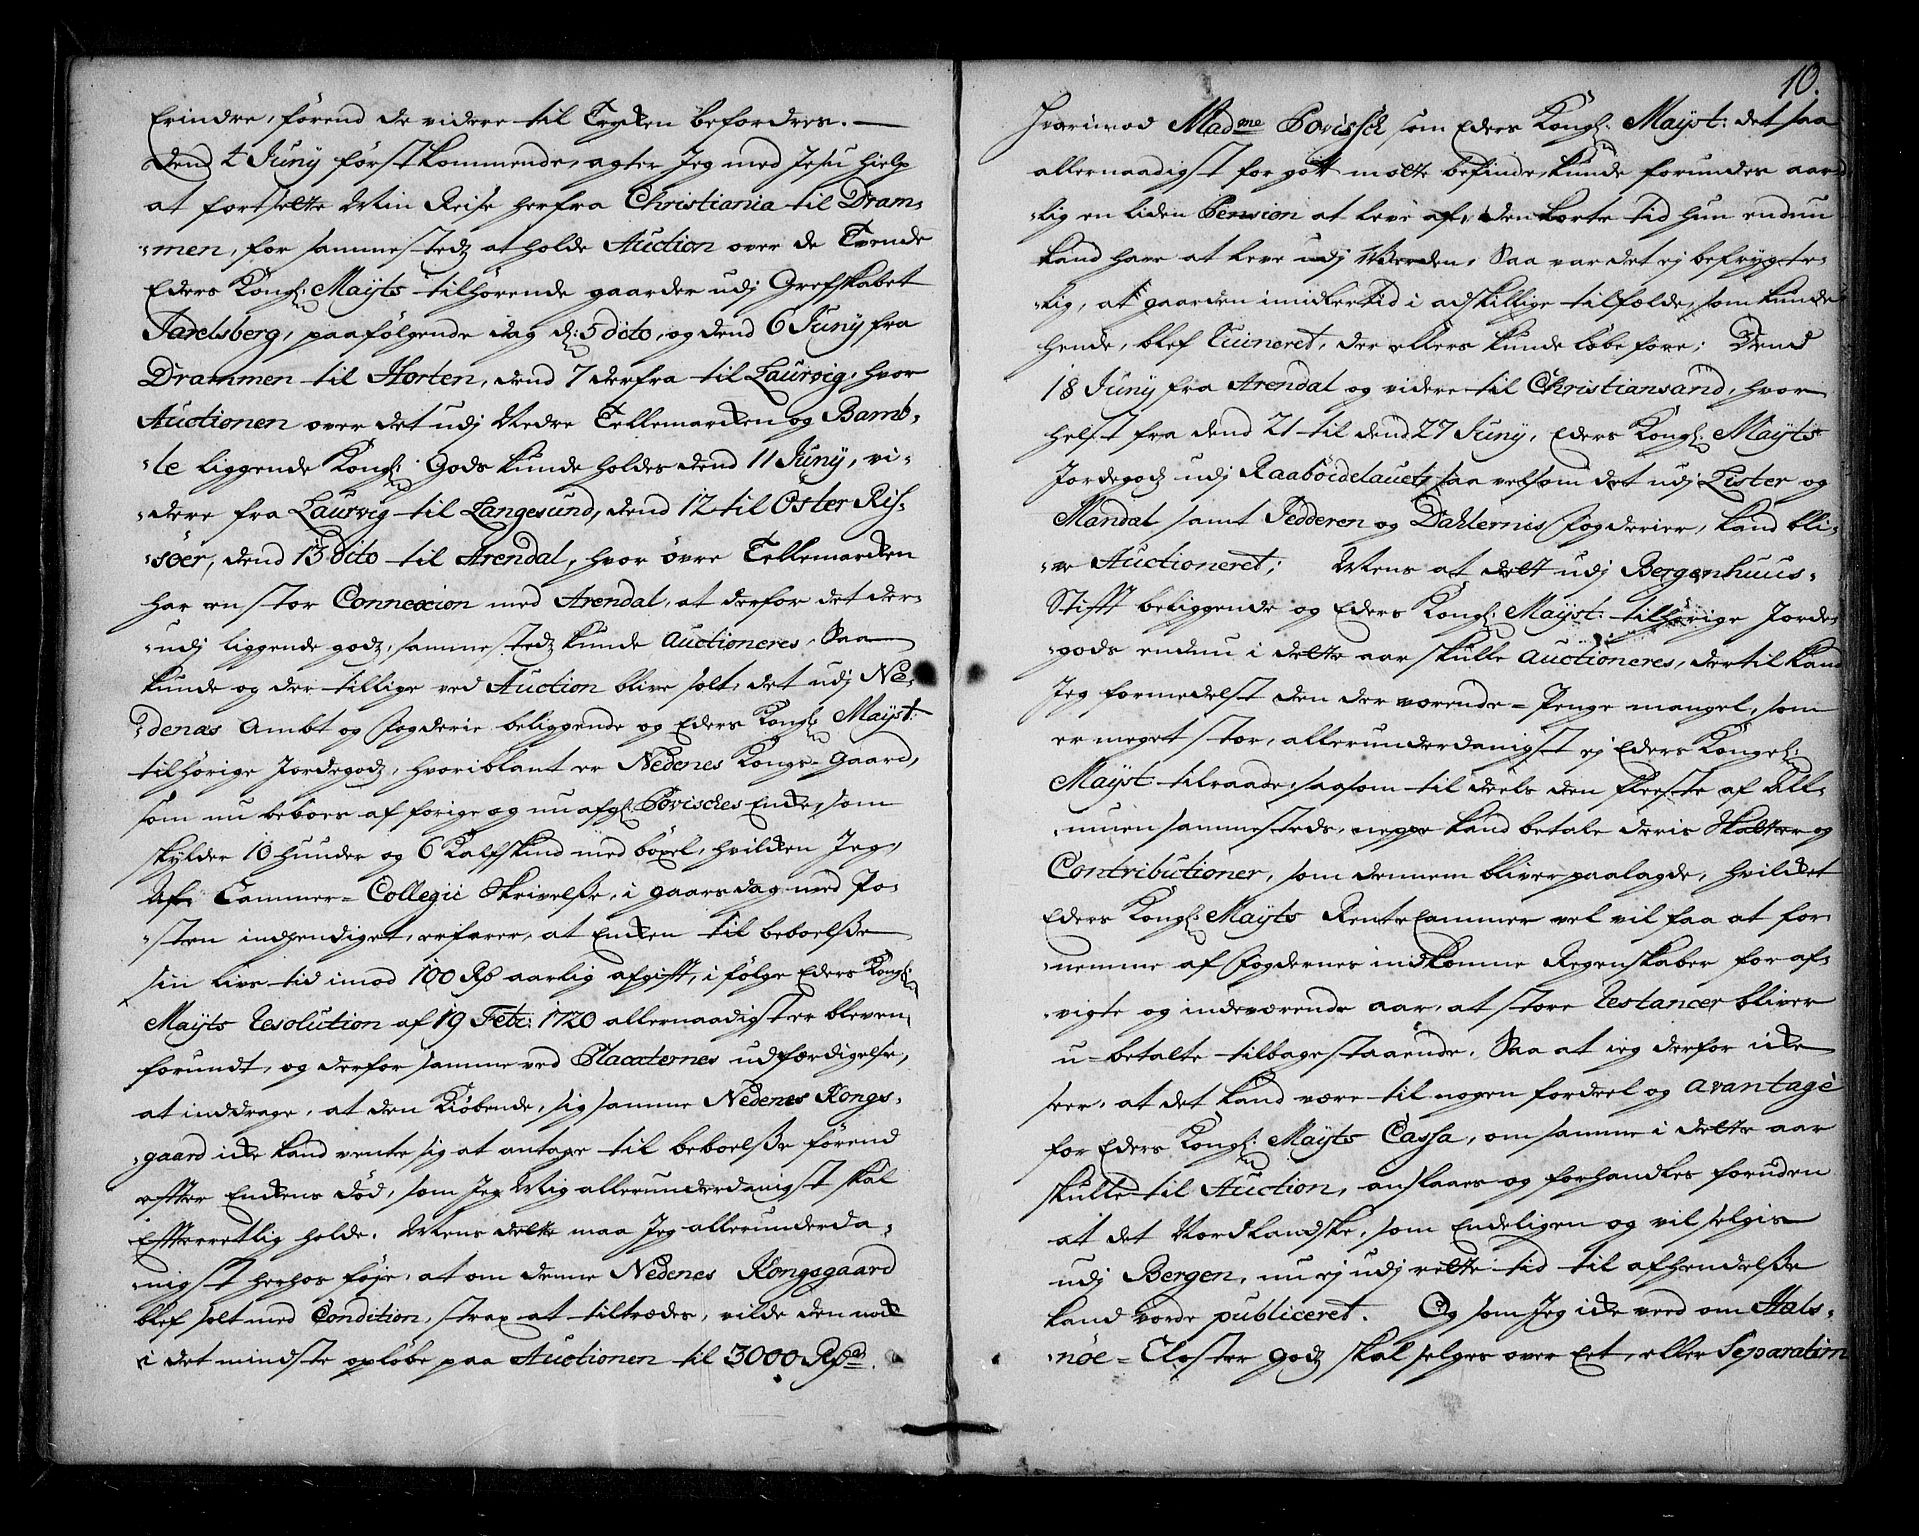 Erindre, förend de videre til Trycken befordres. —
Dend 4 Juny förstkommende, agter Jeg med Jesu hielp
at fortsette Min Reise herfra Christiania til Dram-
-men, for sammestedz at holde Auction over de Tvende
Eders Kongl: Mayts tilhörende gaarder udj Grefskabet
Jarelsberg, paafölgende dag d: 5 dito, og dend 6 Juny fra
Drammen til Horten, dend 7 derfra til Laurvig, hvor
Auctionen over det udj Nedre Tellemarcken og Bamb-
-le liggende Kongl: Gods kunde holdes dend 11 Juny, vi-
-dere fra Laurvig til Langesund, dend 12 til Öster Ris-
-söer, dend 13 dito til Arendal, hvor övre Tellemarcken
har en stor Connexion med Arendal, at derfor det der-
-udj liggende godz, sammestedz kunde Auctioneres, Saa
kunde og der tillige ved Auction blive solt, det udj Ne-
-denæs Ambt og Fogderie beliggende og Eders Kongl: Mayst:
tilhörige Jordegodz, hvoriblant er Nedenes Kongs-Gaard,
som nu beboes af forige og nu afgl: Povisches Encke, som
skylder 10 hunder og 6 Kalfskind med böxel, hvilcken Jeg,
Af Cammer-Collegii Skrivelsse, i gaarsdag med Po-
-sten indhendiget, erfarer, at Encken til beboelsse
sin livs tid imod 100 Rd aarlig afgifft, i fölge Eders Kongl:
Mayts Resolution af 19 Febr: 1720 allernaadigst er bleven
forundt, og derfor samme ved Placaternes udfærdigelse,
at inddrage, at den Kiöbende, sig samme Nedenes Kongs-
-gaard icke kand vente sig at antage til beboelsse förend
effter Enckens död, som Jeg Mig allerunderdanigst skal
Effterretlig holde. Mens dette maa Jeg allerunderda-
-nigst herhos föje, at om denne Nedenes Kongsgaard
blef solt med Condition, strax at tiltrædes, vilde den nock
i det mindste oplöbe paa Auctionen til 3000 Rd.
10.
Hvorimod Madme Povisch som Eders Kongl: Mayst: det saa
allernaadigst for gott motte befinde, kunde forundes aar-
-lig en liden Pension at leve af, den korte tid hun endnu
kand have at leve udj Verden, Saa var det ej befrygte-
-lig, at gaarden imidlertid i adskillige tilfælde, som kunde
hende, blef Ruineret, der ellers kunde löbe fore; Dend
18 Juny fra Arendal og videre til Christiansand, hvor
helst fra dend 21 til dend 27 Juny, Eders Kongl: Mayts
Jordegodz udj Raaböidelauget, saa velsom det udj Lister og
Mandal samt Jedderen og Dahlernis Fogderier, kand bli-
-ve Auctioneret; Mens at dett udj Bergenhuus-
Stifft beliggende og Eders Kongl: Mayst: tilhörige Jorde-
-gods endnu i dette aar skulle Auctioneres, dertil kand
Jeg formedelst den der værende Penge mangel, som
er meget stor, allerunderdanigst ej Eders Kongel:
Mayst tilraade, saasom til deels den fleeste af All-
-muen sammesteds neppe kand betale deris Skatter og
Contributioner, som dennem bliver paalagde, hvilcket
Eders Kongl: Mayts RenteCammer vel vil faa at for-
-nemme af Fogdernes indkomne Regenskaber for af-
-vigte og indeværende aar, at store Restancer bliver
u-betalte tilbagestaaende. Saa at ieg derfor icke
seer, at det kand være til nogen fordeel og avantage
for Eders Kongl: Mayts Cassa, om samme i dette aar
skulle til Auction, anslaaes og forhandles foruden
at det Nordlandske, som Endeligen og vil selgis
udj Bergen, nu ej udj rette tid til afhendelsse
kand vorde publiceret. Og som Jeg icke veed om Hals-
-nöe-Closter godz skal selges over Eet, eller Separatim